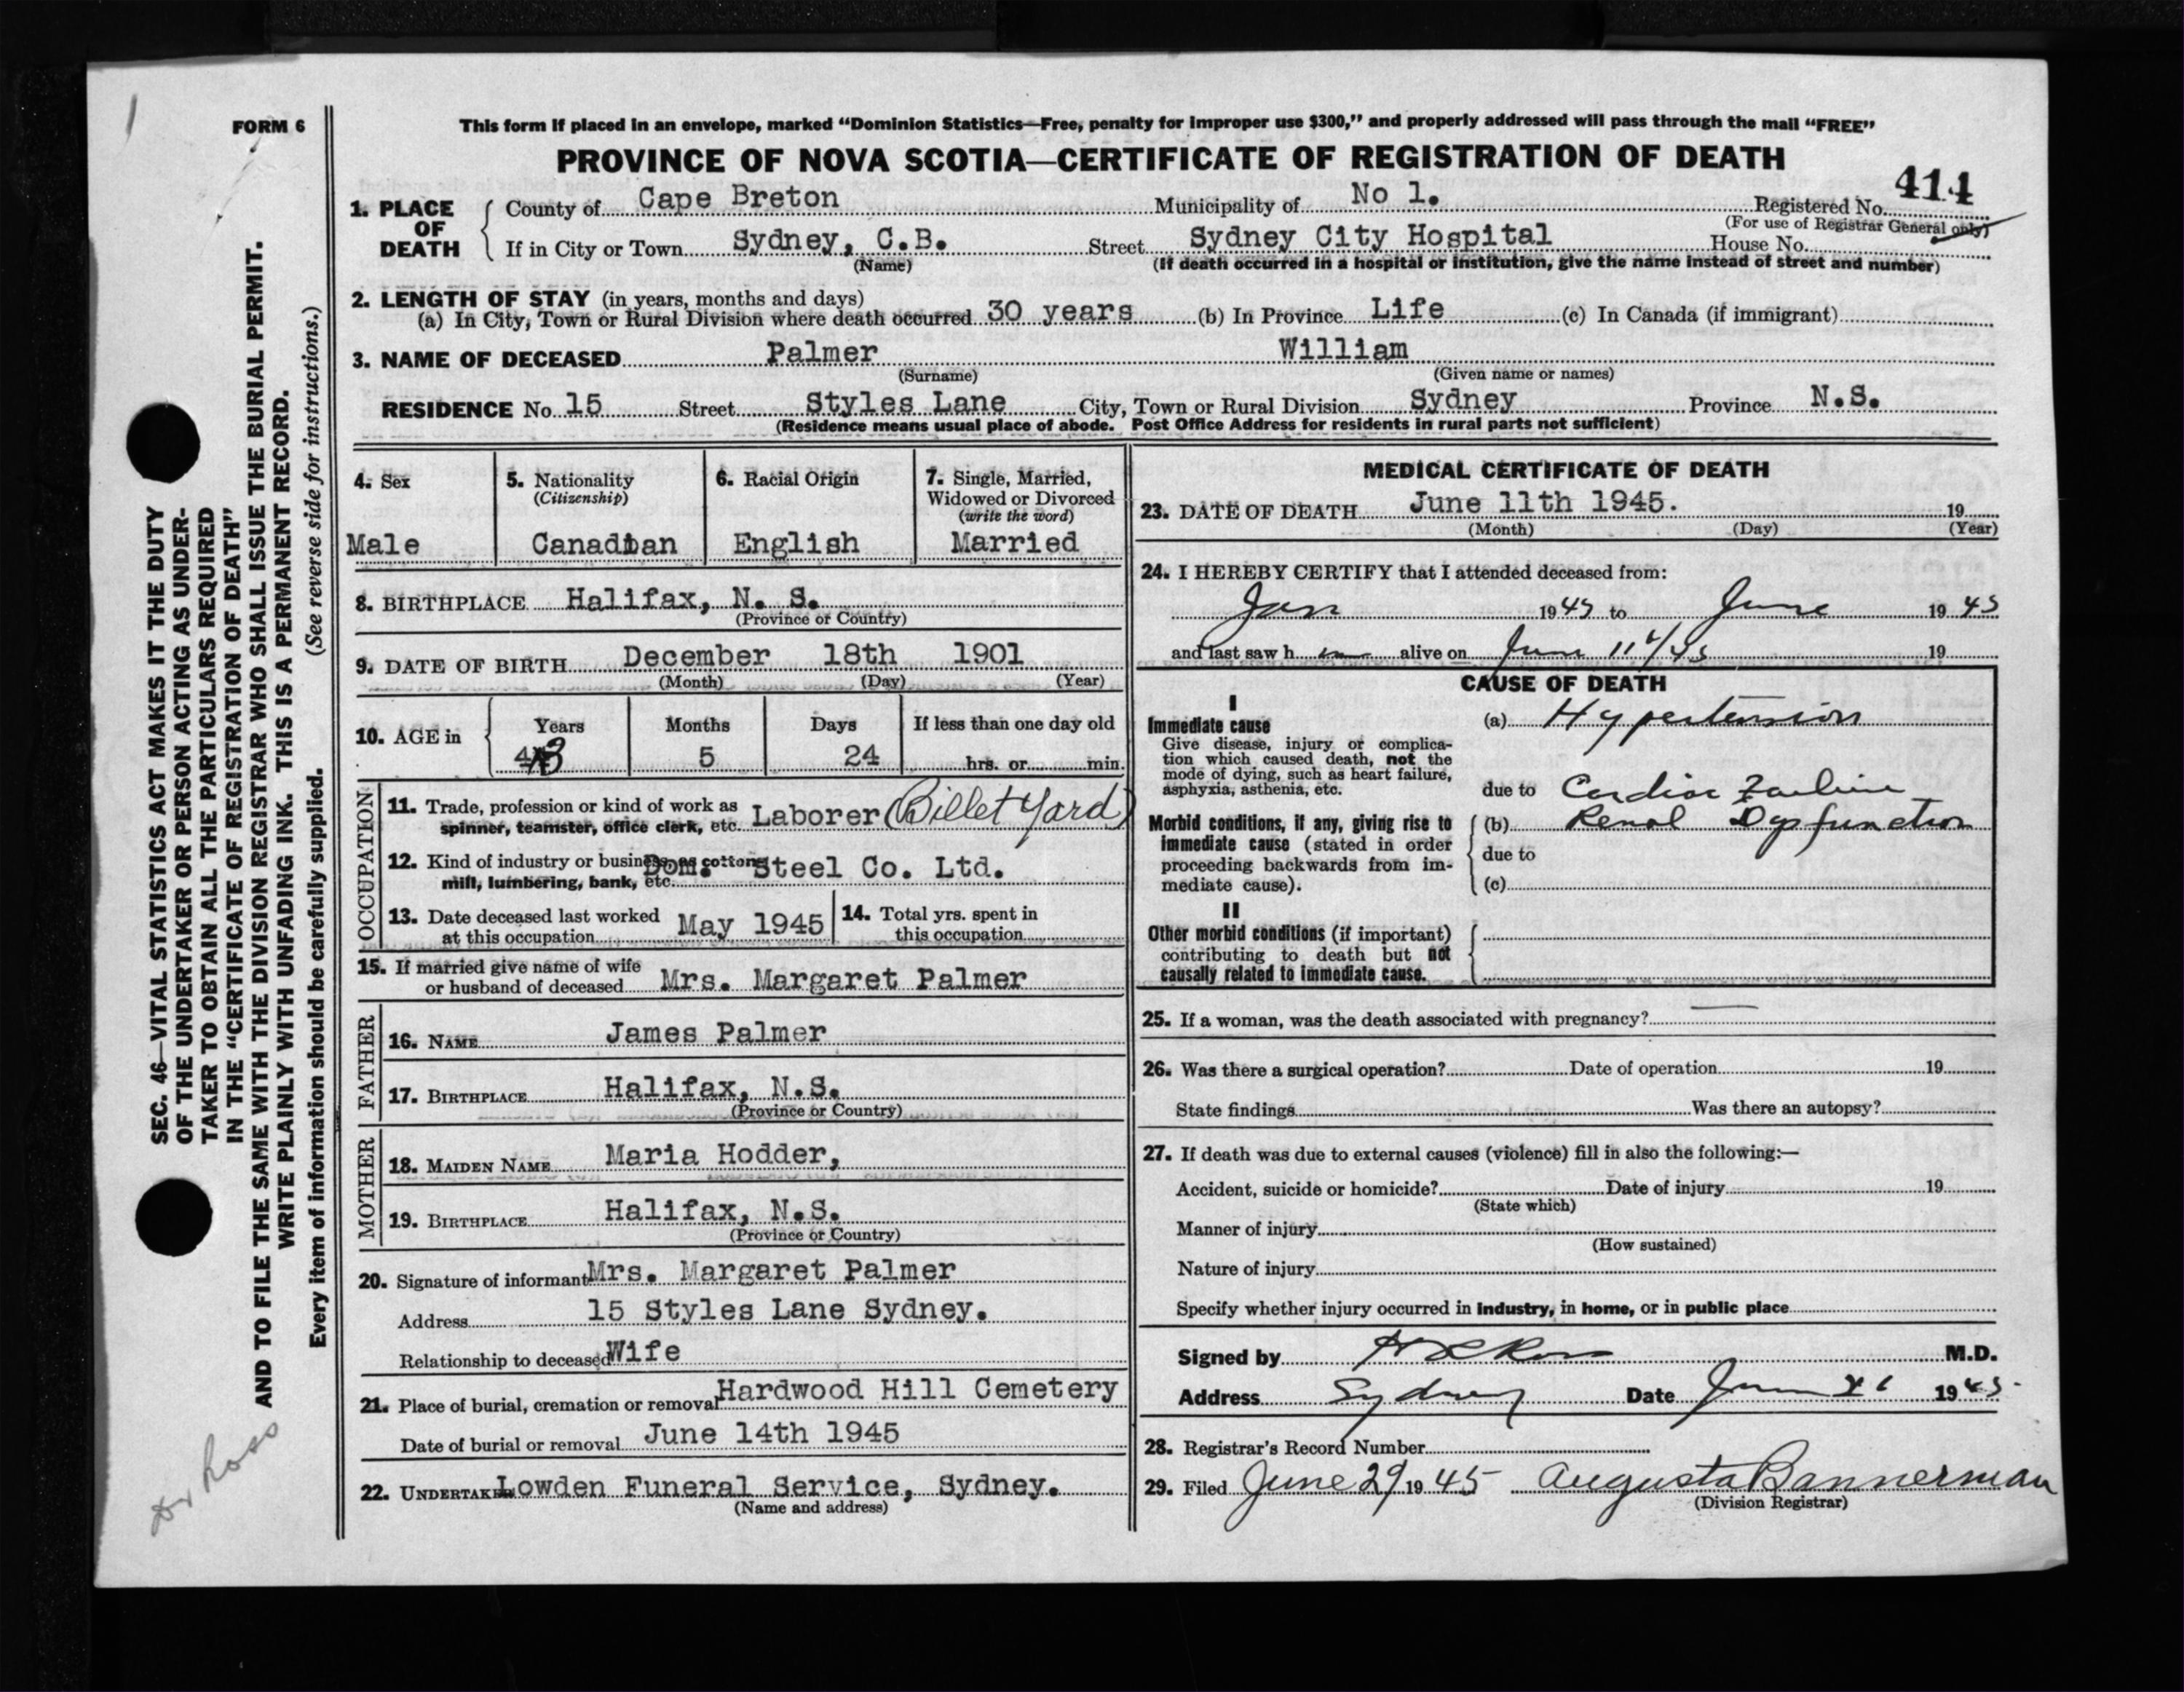 FORM 6
This form if placed in an envelope, marked "Dominion Statistics—Free, penalty for improper use $300," and properly addressed will pass through the mail "FREE"
PROVINCE OF NOVA SCOTIA—CERTIFICATE OF REGISTRATION OF DEATH
414
1. PLACE OF DEATH
County of Cape Breton Municipality of No 1. Registered No.
(For use of Registrar General only)
If in City or Town Sydney, C.B. Street Sydney City Hospital House No.
(Name) (If death occurred in a hospital or institution, give the name instead of street and number)
2. LENGTH OF STAY (in years, months and days)
(a) In City, Town or Rural Division where death occurred 30 years (b) In Province Life (c) In Canada (if immigrant)
3. NAME OF DECEASED Palmer William
(Surname) (Given name or names)
RESIDENCE No 15 Street Styles Lane City, Town or Rural Division Sydney Province N.S.
(Residence means usual place of abode. Post Office Address for residents in rural parts not sufficient)
4. Sex
Male
5. Nationality
(Citizenship)
Canadian
6. Racial Origin
English
7. Single, Married,
Widowed or Divorced
(write the word)
Married
8. BIRTHPLACE Halifax, N. S.
(Province or Country)
9. DATE OF BIRTH December 18th 1901
(Month) (Day) (Year)
10. AGE in
Years Months Days If less than one day old
43 5 24 hrs. or min.
OCCUPATION
11. Trade, profession or kind of work as
spinner, teamster, office clerk, etc. Laborer (Billet Yard)
12. Kind of industry or business, as cotton
mill, lumbering, bank, etc. Dom. Steel Co. Ltd.
13. Date deceased last worked
at this occupation May 1945
14. Total yrs. spent in
this occupation
15. If married give name of wife
or husband of deceased Mrs. Margaret Palmer
FATHER
16. NAME James Palmer
17. BIRTHPLACE Halifax, N.S.
(Province or Country)
MOTHER
18. MAIDEN NAME Maria Hodder,
19. BIRTHPLACE Halifax, N.S.
(Province or Country)
20. Signature of informant Mrs. Margaret Palmer
Address 15 Styles Lane Sydney.
Relationship to deceased Wife
21. Place of burial, cremation or removal Hardwood Hill Cemetery
Date of burial or removal June 14th 1945
22. UNDERTAKER Lowden Funeral Service, Sydney.
(Name and address)
MEDICAL CERTIFICATE OF DEATH
23. DATE OF DEATH June 11th 1945. 19
(Month) (Day) (Year)
24. I HEREBY CERTIFY that I attended deceased from:
Jan 1945 to June 1945
and last saw h im alive on June 11/45 19
CAUSE OF DEATH
I
Immediate cause
Give disease, injury or complica-
tion which caused death, not the
mode of dying, such as heart failure,
asphyxia, asthenia, etc.
(a) Hypertension
due to Cardiac Failure
Morbid conditions, if any, giving rise to
immediate cause (stated in order
proceeding backwards from im-
mediate cause).
(b) Renal Dysfunction
due to
(c)
II
Other morbid conditions (if important)
contributing to death but not
causally related to immediate cause.
25. If a woman, was the death associated with pregnancy? —
26. Was there a surgical operation? Date of operation 19
State findings Was there an autopsy?
27. If death was due to external causes (violence) fill in also the following:—
Accident, suicide or homicide? Date of injury 19
(State which)
Manner of injury
(How sustained)
Nature of injury
Specify whether injury occurred in industry, in home, or in public place
Signed by Ross M.D.
Address Sydney Date June 1945
28. Registrar's Record Number
29. Filed June 29 1945 Augusta Bannerman
(Division Registrar)
SEC. 46—VITAL STATISTICS ACT MAKES IT THE DUTY
OF THE UNDERTAKER OR PERSON ACTING AS UNDER-
TAKER TO OBTAIN ALL THE PARTICULARS REQUIRED
IN THE "CERTIFICATE OF REGISTRATION OF DEATH"
AND TO FILE THE SAME WITH THE DIVISION REGISTRAR WHO SHALL ISSUE THE BURIAL PERMIT.
WRITE PLAINLY WITH UNFADING INK. THIS IS A PERMANENT RECORD.
(See reverse side for instructions.)
Every item of information should be carefully supplied.
Dr Ross